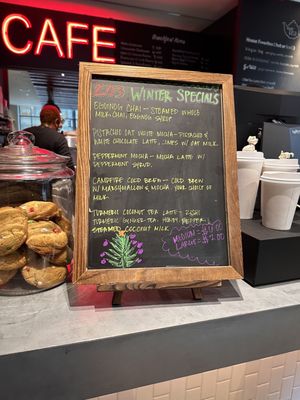 CAFE
Breakfast Menu
WINTER SPECIALS
EGGNOG CHAI - STEAMED WHOLE
MILK, CHAI, EGGNOG SYRUP
PISTACHIO OAT WHITE MOCHA - PISTACHIO &
WHITE CHOCOLATE LATTE, COMES W/ OAT MILK.
PEPPERMINT MOCHA - MOCHA LATTE W/
PEPPERMINT SYRUP.
CAMPFIRE COLD BREW - COLD BREW
W/ MARSHMALLOW & MOCHA YOUR CHOICE OF
MILK.
TURMERIC COCONUT TEA LATTE - RISHI
TURMERIC GINGER TEA, HONEY, PEPPER,
STEAMED COCONUT MILK
MEDIUM =
LARGE =